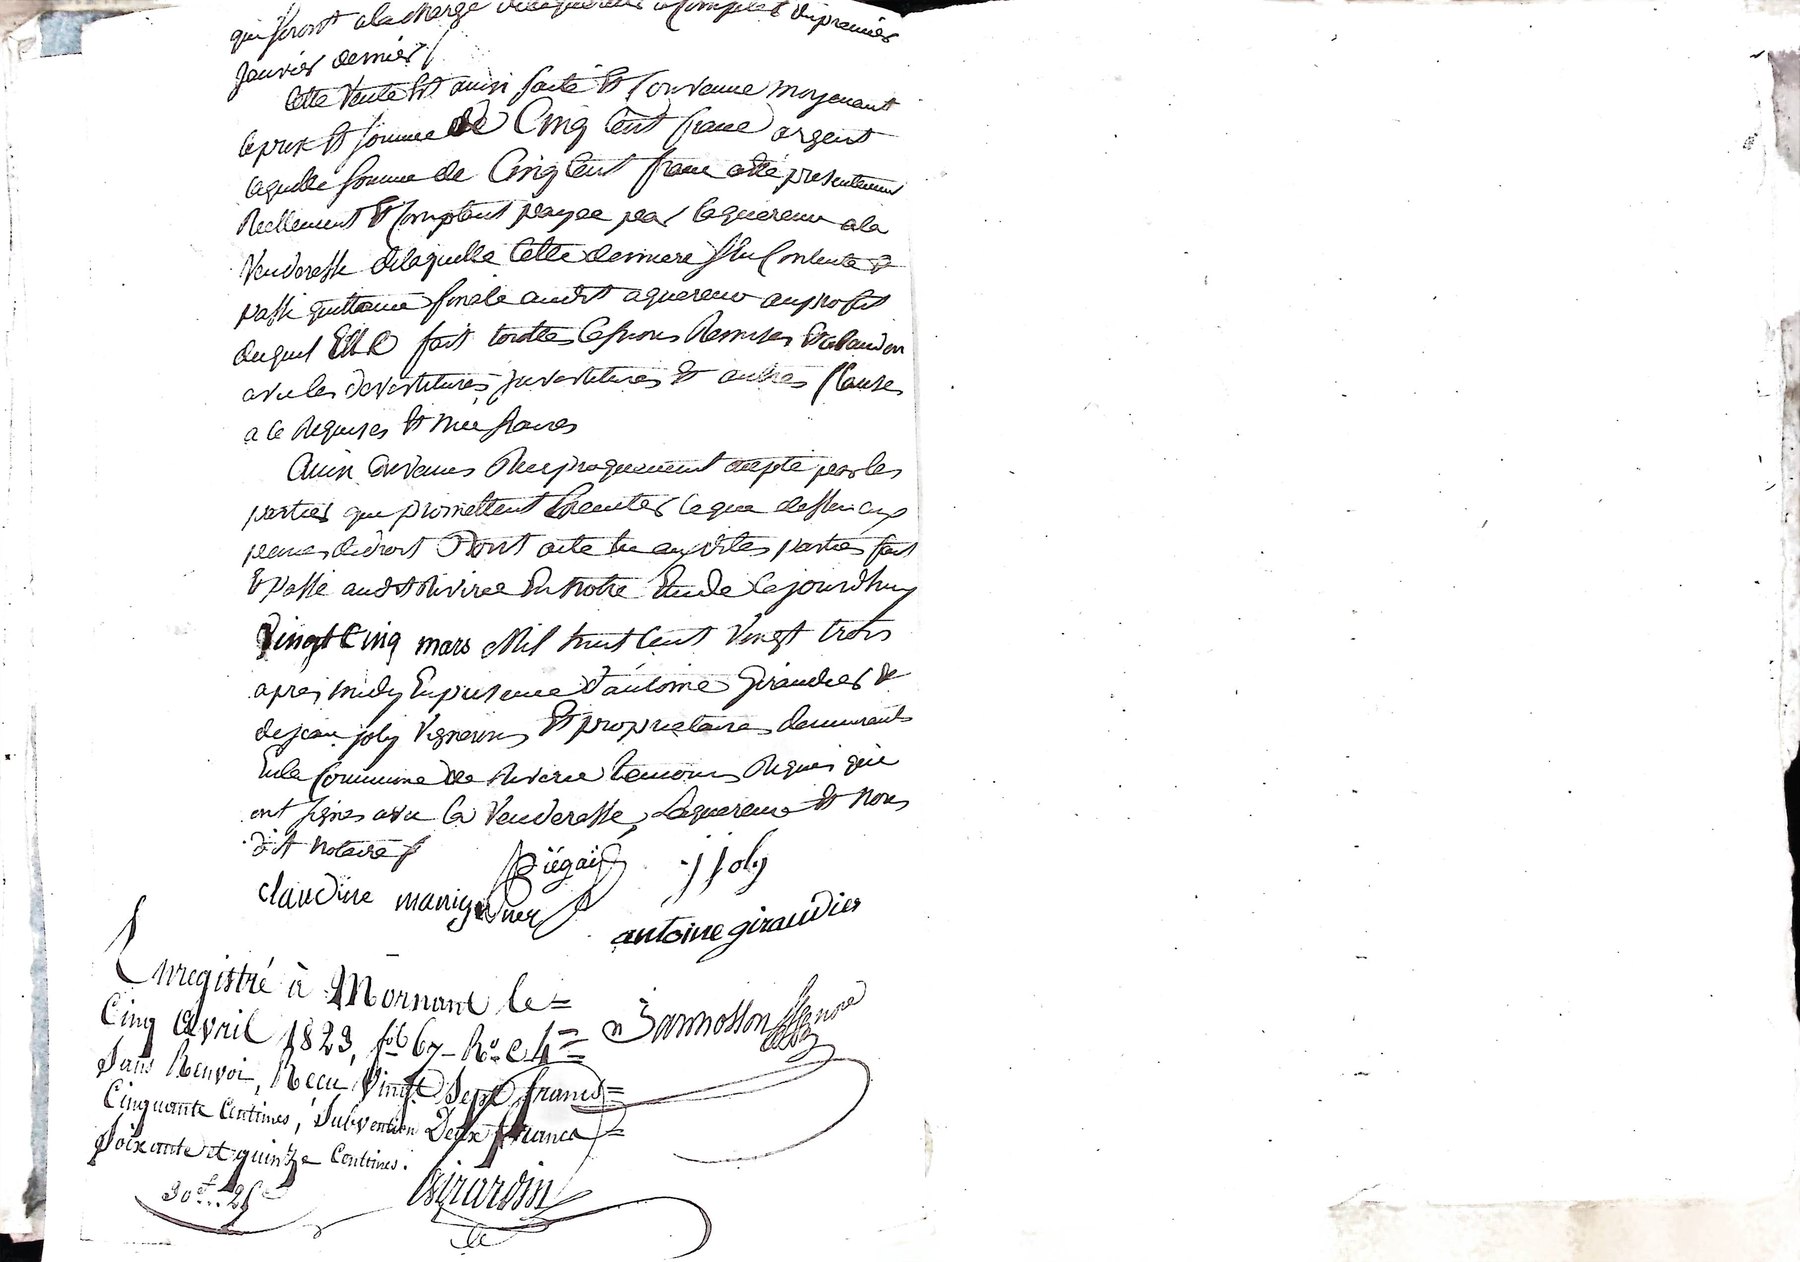 qui seront a la charge de laquereur a compter du premier
Janvier dernier /
Cette Vente Est ainsi faite Et Convenue moyenant
le prix Et somme de Cinq Cent franc argent
laquelle somme de Cinq Cent franc a eté presentement
Reellement Et Comptant payee par laquereur a la
Venderesse de laquelle Cette derniere sEn Contente &
passe quittance finale audit aquereur au profit
duquel Elle fait touttes Cessions Remises Et abandon
avec les devestitures jnvestitures Et autres Clauses
a ce Requises Et nécessaires
Ainsi Convenus Reciproquement accepté par les
parties qui promettent Executer ce que dessus aux
peines de droit Dont acte lu auxdites parties fait
Et Passé audit Riverie En notre Etude Cejourdhuy
Vingt Cinq mars Mil huit Cent Vingt trois
apres midy En presence d'antoine Giraudier &
de jean joly Vignerons Et proprietaires demeurants
En la Commune de Riverie temoins Requis qui
ont signes avec la Venderesse, Laquereur Et Nous
dit notaire /
Piégai j joly
claudine manig
antoine giraudier
Enregistré à Mornant le =
Cinq Avril 1823, f° 67 R° C 4 =
Sans Renvoi, Recu Vingt Sept francs =
Cinquante Centimes, Subvention Deux francs =
Soixante et quinze Centimes.
30 f .. 25 c
Girardin